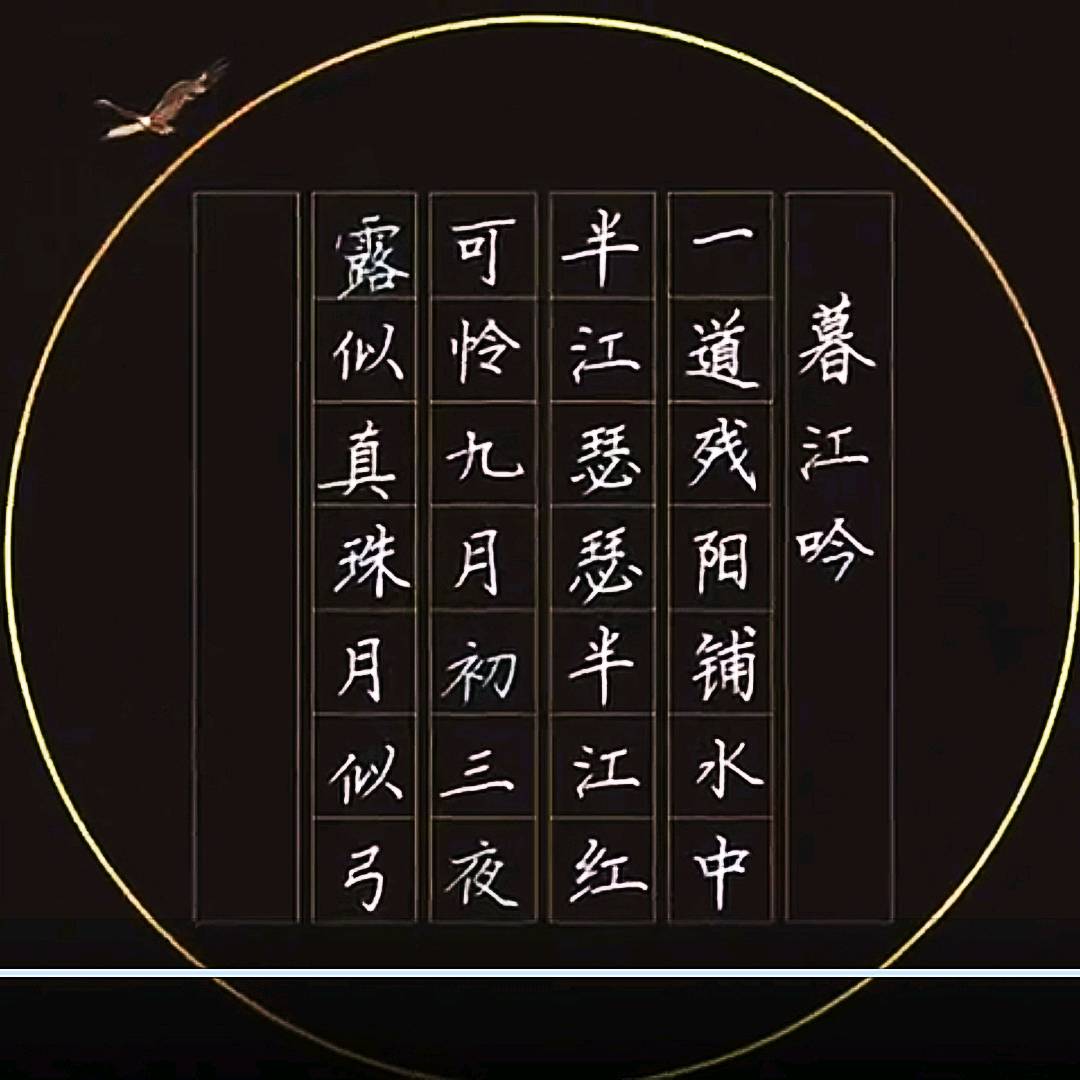 暮江吟
一道残阳铺水中
半江瑟瑟半江红
可怜九月初三夜
露似真珠月似弓